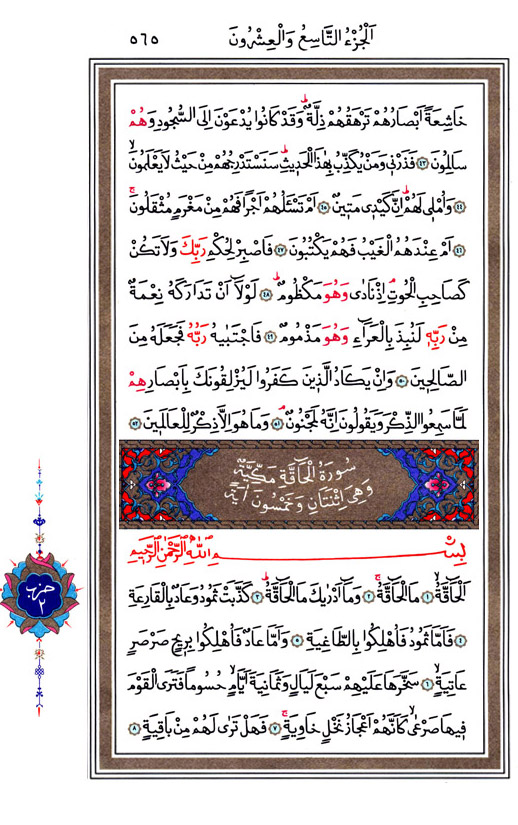 اَلْجُزْءُ التَّاسِعُ وَالْعِشْرُونَ
٥٦٥
خَاشِعَةً اَبْصَارُهُمْ تَرْهَقُهُمْ ذِلَّةٌۜ وَقَدْ كَانُوا يُدْعَوْنَ اِلَى السُّجُودِ وَهُمْ
سَالِمُونَ ﴿٤٣﴾ فَذَرْنٖى وَمَنْ يُكَذِّبُ بِهٰذَا الْحَدٖيثِۜ سَنَسْتَدْرِجُهُمْ مِنْ حَيْثُ لَا يَعْلَمُونَۙ
﴿٤٤﴾ وَاُمْلٖى لَهُمْۜ اِنَّ كَيْدٖى مَتٖينٌ ﴿٤٥﴾ اَمْ تَسْـَٔلُهُمْ اَجْرًا فَهُمْ مِنْ مَغْرَمٍ مُثْقَلُونَۚ
﴿٤٦﴾ اَمْ عِنْدَهُمُ الْغَيْبُ فَهُمْ يَكْتُبُونَ ﴿٤٧﴾ فَاصْبِرْ لِحُكْمِ رَبِّكَ وَلَا تَكُنْ
كَصَاحِبِ الْحُوتِۢ اِذْ نَادٰى وَهُوَ مَكْظُومٌۜ ﴿٤٨﴾ لَوْلَٓا اَنْ تَدَارَكَهُ نِعْمَةٌ
مِنْ رَبِّهٖ لَنُبِذَ بِالْعَرَٓاءِ وَهُوَ مَذْمُومٌ ﴿٤٩﴾ فَاجْتَبٰيهُ رَبُّهُ فَجَعَلَهُ مِنَ
الصَّالِحٖينَ ﴿٥٠﴾ وَاِنْ يَكَادُ الَّذٖينَ كَفَرُوا لَيُزْلِقُونَكَ بِاَبْصَارِهِمْ
لَمَّا سَمِعُوا الذِّكْرَ وَيَقُولُونَ اِنَّهُ لَمَجْنُونٌۢ ﴿٥١﴾ وَمَا هُوَ اِلَّا ذِكْرٌ لِلْعَالَمٖينَ ﴿٥٢﴾
سُورَةُ الْحَٓاقَّةِ مَكِّيَّةٌ
وَهِىَ اِثْنَتَانِ وَخَمْسُونَ اٰيَةً
بِسْمِ اللّٰهِ الرَّحْمٰنِ الرَّحٖيمِ
اَلْحَٓاقَّةُۙ ﴿١﴾ مَا الْحَٓاقَّةُۚ ﴿٢﴾ وَمَٓا اَدْرٰيكَ مَا الْحَٓاقَّةُۜ ﴿٣﴾ كَذَّبَتْ ثَمُودُ وَعَادٌ بِالْقَارِعَةِ
﴿٤﴾ فَاَمَّا ثَمُودُ فَاُهْلِكُوا بِالطَّاغِيَةِ ﴿٥﴾ وَاَمَّا عَادٌ فَاُهْلِكُوا بِرٖيحٍ صَرْصَرٍ
عَاتِيَةٍۙ ﴿٦﴾ سَخَّرَهَا عَلَيْهِمْ سَبْعَ لَيَالٍ وَثَمَانِيَةَ اَيَّامٍۙ حُسُومًا فَتَرَى الْقَوْمَ
فٖيهَا صَرْعٰىۙ كَاَنَّهُمْ اَعْجَازُ نَخْلٍ خَاوِيَةٍۚ ﴿٧﴾ فَهَلْ تَرٰى لَهُمْ مِنْ بَاقِيَةٍ ﴿٨﴾
حزب
٢